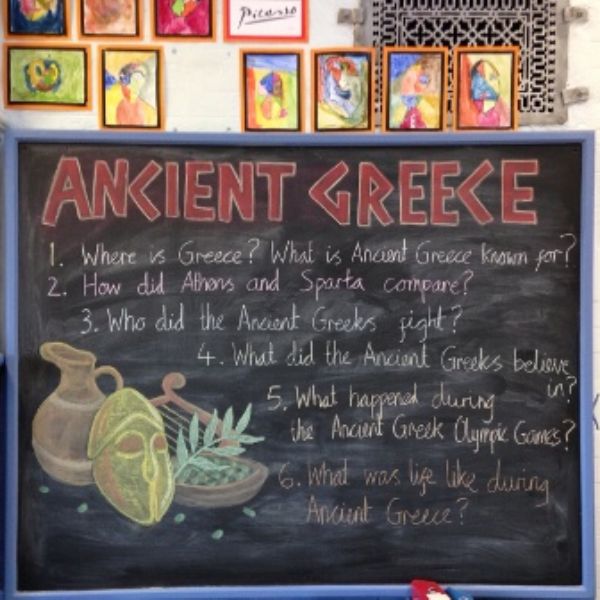 Picasso
ANCIENT GREECE
1. Where is Greece? What is Ancient Greece known for?
2. How did Athens and Sparta compare?
3. Who did the Ancient Greeks fight?
4. What did the Ancient Greeks believe
in?
5. What happened during
the Ancient Greek Olympic Games?
6. What was life like during
Ancient Greece?